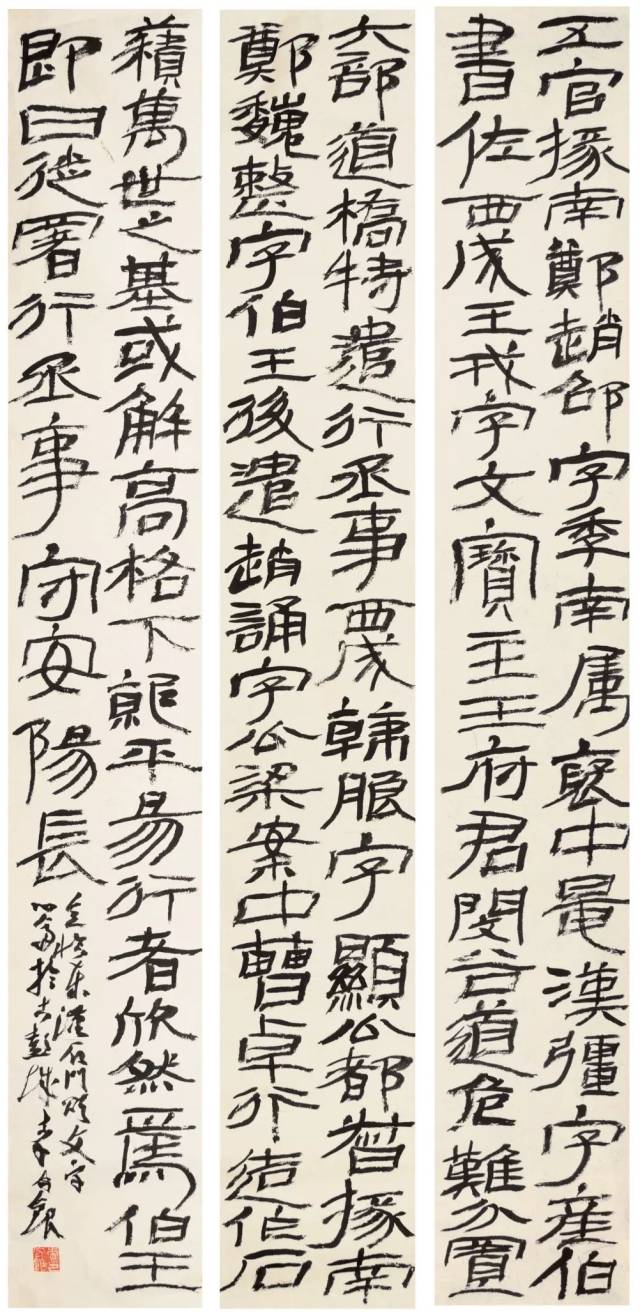 五官掾南鄭趙邵字季南属褒中鼂漢彊字産伯
書佐西成王戒字文寶主王府君閔谷道危難分置
六部道橋特遣行丞事西成韓朖字顯公都督掾南
鄭魏整字伯王後遣趙誦字公梁案中曹卓行造作石
積萬世之基或解高格下就平易行者欣然焉伯王
即日徙署行丞事守安陽長
臨東漢石門頌文字
於古彭城李